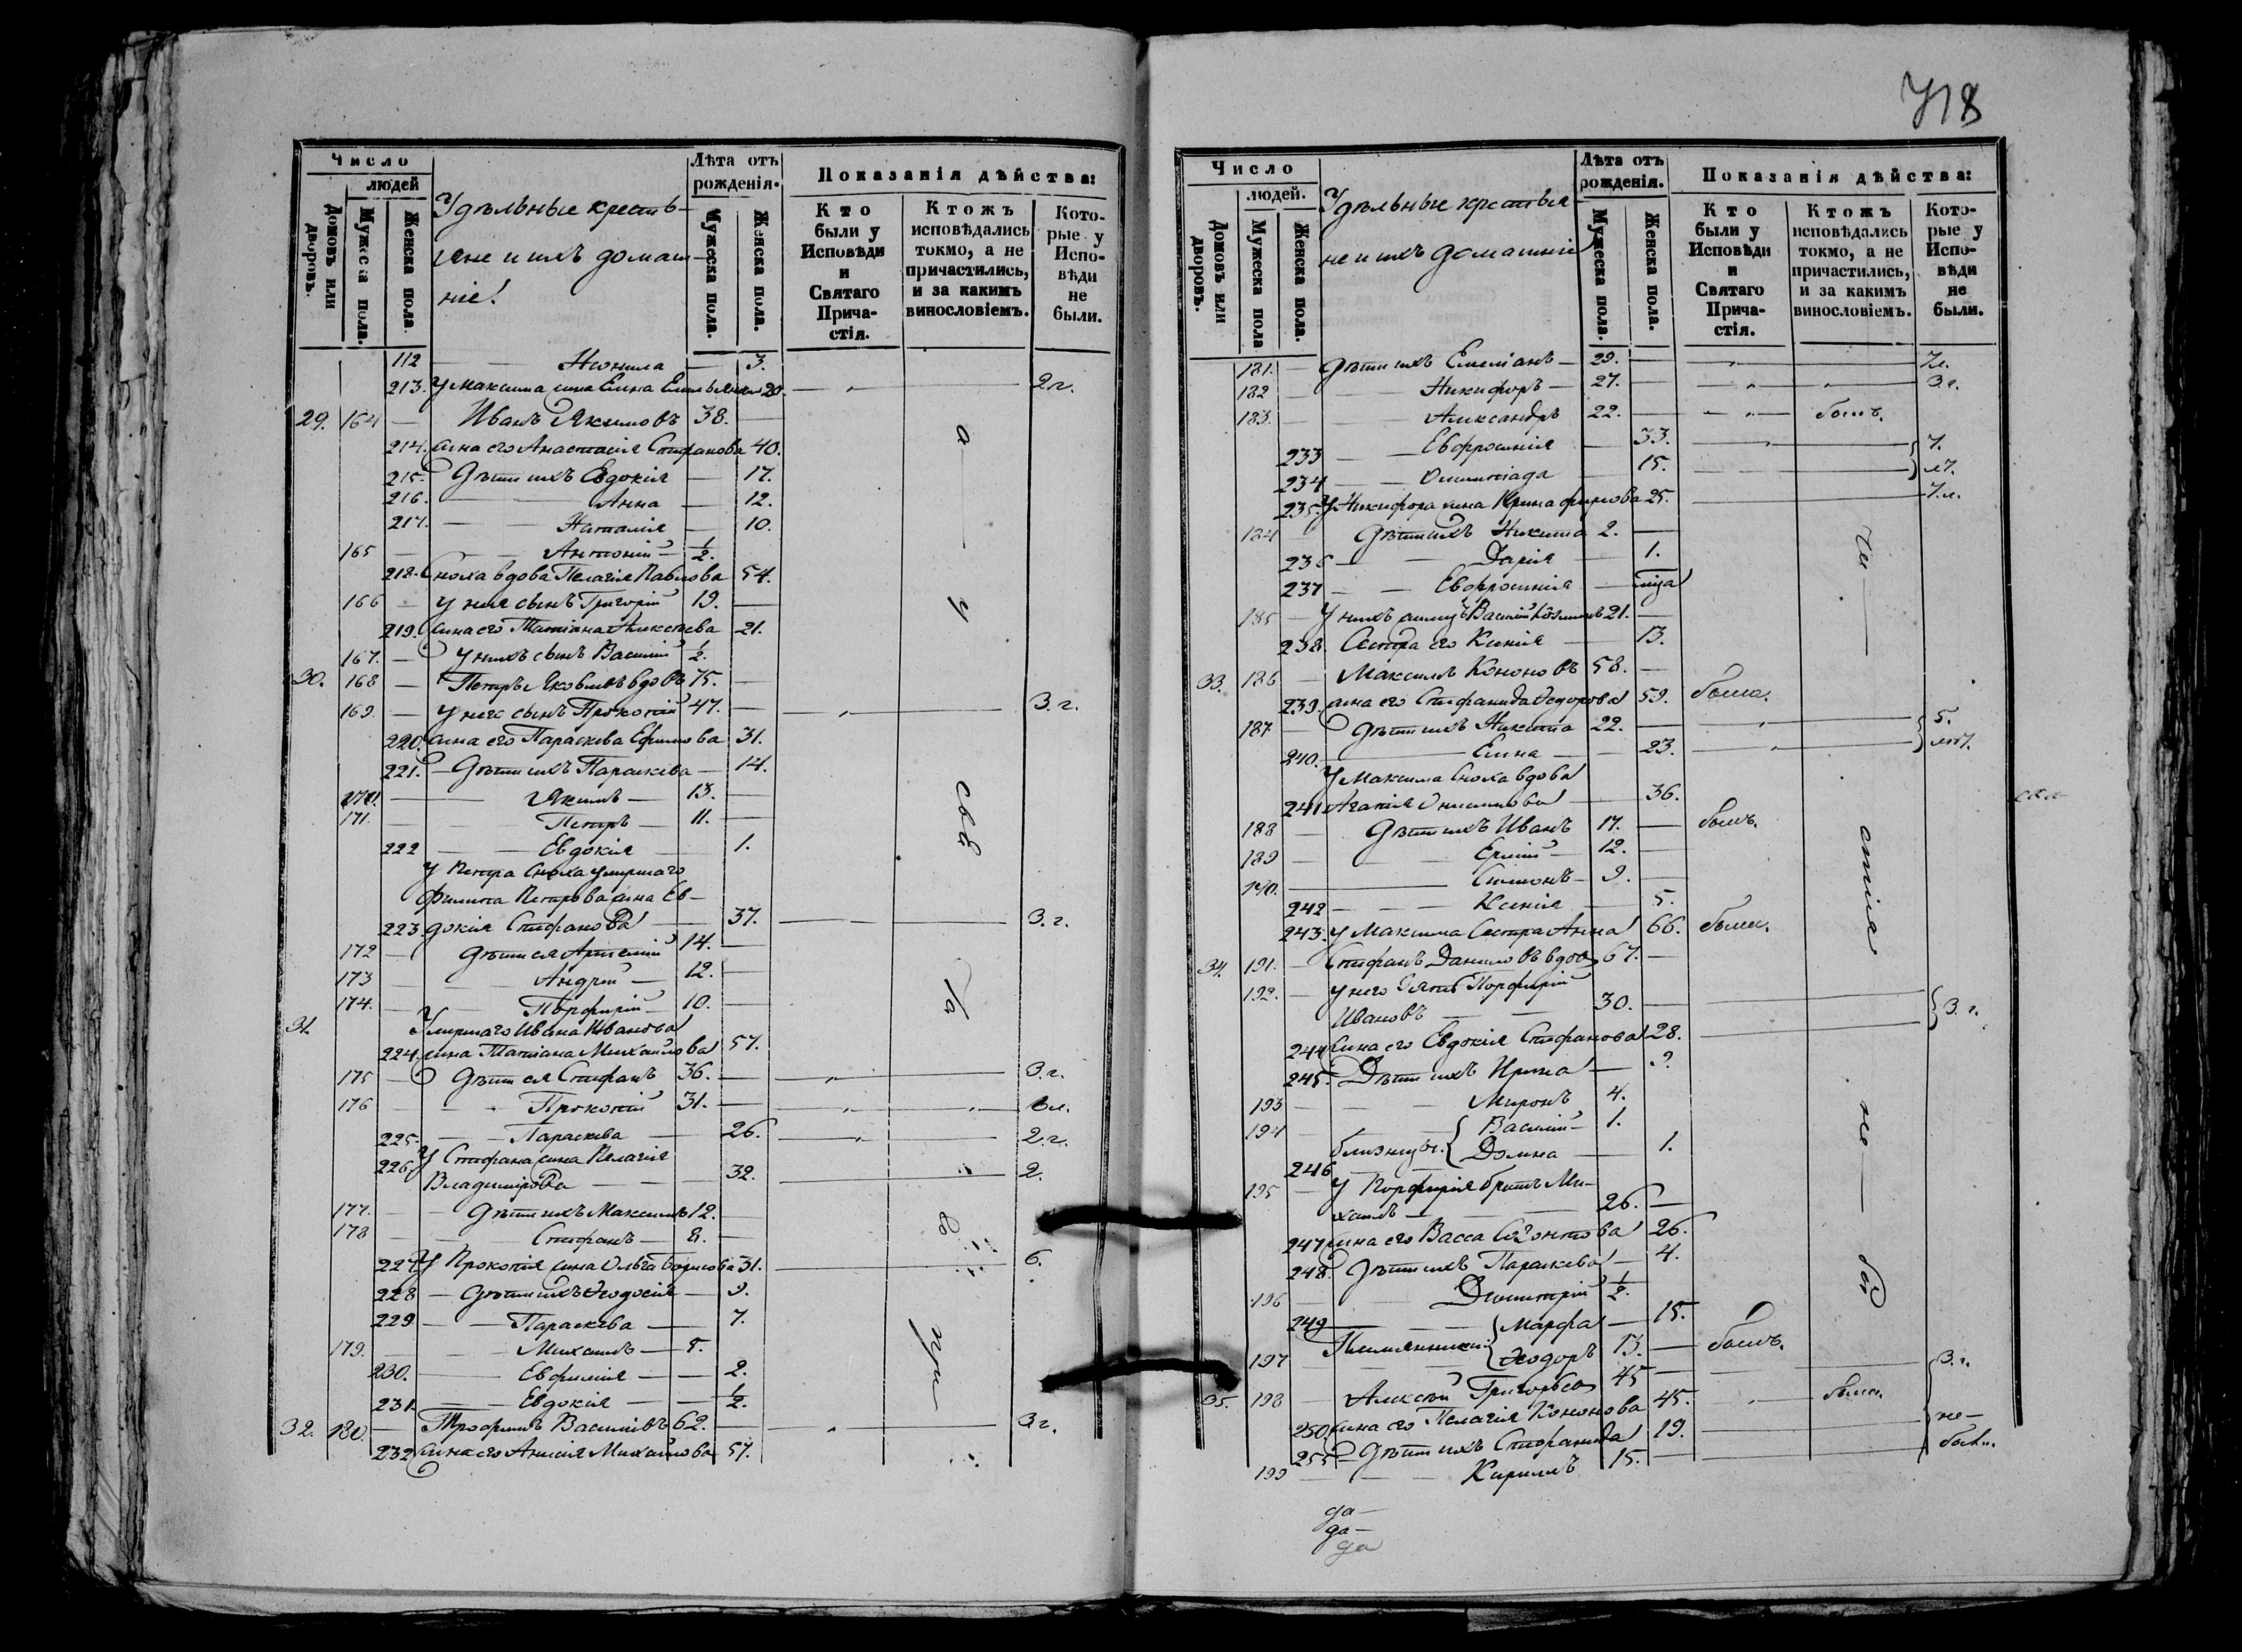 718
Число
людей
Домовъ или дворовъ.
Мужеска пола.
Женска пола.
Удѣльные кресть-
яне и ихъ домаш-
ніе.
Лѣта отъ рожденія.
Мужеска пола.
Женска пола.
Показанія дѣйства:
Кто были у Исповѣди и Святаго Прича-стія.
Ктожъ исповѣдались токмо, а не причастились, и за какимъ винословіемъ.
Кото-рые у Испо-вѣди не были.
112 — Неонила — 3.
213. У Максима жена Елена 20. — „ — 2 г.
29. 164 — Иванъ Якимовъ 38. —
214. жена его Анастасія Стефанова 40.
215. Дѣти ихъ Евдокія — 17.
216. — Анна — 12.
217. — — Наталія — 10.
165 — — Антоній — ½.
218. Сноха вдова Пелагія Павлова 54.
166 — у нея сынъ Григорій 19. —
219. жена его Татіана Алексѣева 21.
167. — у нихъ сынъ Василій ½.
30. 168 — Петръ Яковлевъ вдовъ 75. —
169. — у него сынъ Прокопій 47. — „ — 3. г.
220. жена его Параскева Ефимова 31.
221. — Дѣти ихъ Параскева — 14.
170. — Якимъ — 13. —
171. — — Петръ — 11. —
222 — — Евдокія — 1.
У Петра сноха умершаго
Филипа Петрова жена Ев-
223. докія Стефанова — 37. — 3. г.
172 — Дѣти ея Артемій 14. —
173 — — Андрей — 12. —
174. — — Порфирій — 10. —
31. Умершаго Ивана Иванова
224. жена Татіана Михайлова 57.
175 — Дѣти ея Стефанъ 36. — „ — 3. г.
176 — — Прокопій 31. — „ — „ —
225. — Параскева — 26. — „ — 2. г.
226. У Стефана жена Пелагія
Владимірова — — 32. — 2.
177. — — Дѣти ихъ Максимъ 12. —
178 — — Стефанъ — 8. —
227. У Прокопія жена Ольга Борисова 31. — 6.
228 — Дѣти ихъ Ѳеодосія — 9.
229. — — Параскева — 7.
179. — — Михаилъ — 5.
230. — Евфимія — — 2.
231. — Евдокія — — ½.
32. 180. — Трофимъ Василіевъ 62. — „ — 3 г.
232 жена его Анисія Михайлова 57.
Число
людей.
Домовъ или дворовъ.
Мужеска пола
Женска пола.
Удѣльные крестья-
не и ихъ домашніе
Лѣта отъ рожденія.
Мужеска пола.
Женска пола.
Показанія дѣйства:
Кто были у Исповѣди и Святаго Прича-стія.
Ктожъ исповѣдались токмо, а не причастились, и за какимъ винословіемъ.
Кото-рые у Испо-вѣди не были.
181. — Дѣти ихъ Емеліанъ — 29. — „ —
182 — — Никифоръ — 27. — „ — „ — 3 г.
183. — — Александръ 22. — „ — былъ.
233 — — Евфросинія — 33. — „ — 7.
234 — — Олимпіада 15. — л7.
235. У Никифора жена Ирина 25. — 7 л.
184 — Дѣти ихъ Никита 2. —
236 — — Дарія — 1.
237 — — Евфросинія —
185 — У нихъ Василій 21. —
238. Сестра его Ксенія — 13.
33. 186 — Максимъ Кононовъ 58. —
239. жена его Стефанида Ѳедорова 59. была.
187. — Дѣти ихъ Никита 22. — „ — 5.
240. — Елена — 23. — „ — лѣт.
У Максима сноха вдова
241 Агапія Онисимова — 36.
188 — Дѣти ихъ Иванъ 17. — былъ.
189 — — — 12. —
190. — Симонъ — 9. —
242 — — Ксенія — 5.
243. У Максима сестра Анна 66. была.
34. 191. — Стефанъ Даниловъ вдовъ 67. —
192. — у него зять Порфирій
Ивановъ — — 30. — 3. г.
244 жена его Евдокія Стефанова 28. —
245. Дѣти ихъ Ирина — 9.
193 — — Миронъ 4.
194 — — Василій — 1.
близнецы.
246 — — Домна — 1.
195 — У Порфирія братъ Ми-
хаилъ — — 26. —
247 жена его Васса Созонтова 26.
248. Дѣти ихъ Параскева — 4.
196 — — Димитрій ½.
249 — Марфа — 15.
Племянники
197 Ѳеодоръ 13. — былъ.
35. 198 — Алексѣй Григорьевъ 45 — 3. г.
250. жена его Пелагія Кононова 45. „ — была.
255 — Дѣти ихъ Стефанида 19. — не-
199 — — Кирилъ 15. — были.
да —
да —
да